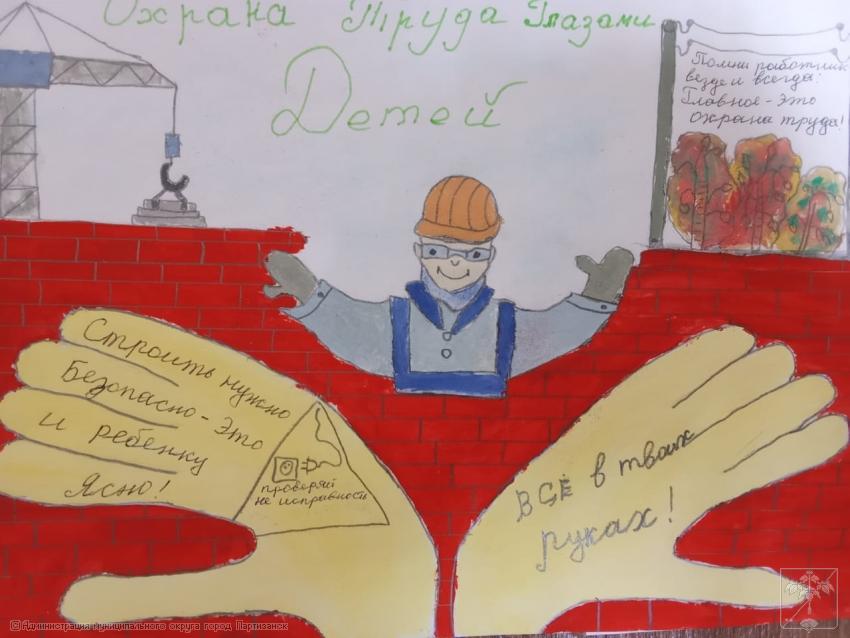 Охрана Труда Глазами
Детей
Помни работник
везде и всегда:
Главное - это
охрана труда!
Строить нужно
Безопасно - это
и ребенку
Ясно!
проверяй
не исправность
ВСЁ в твоих
руках!
© Администрация муниципального округа город Партизанск